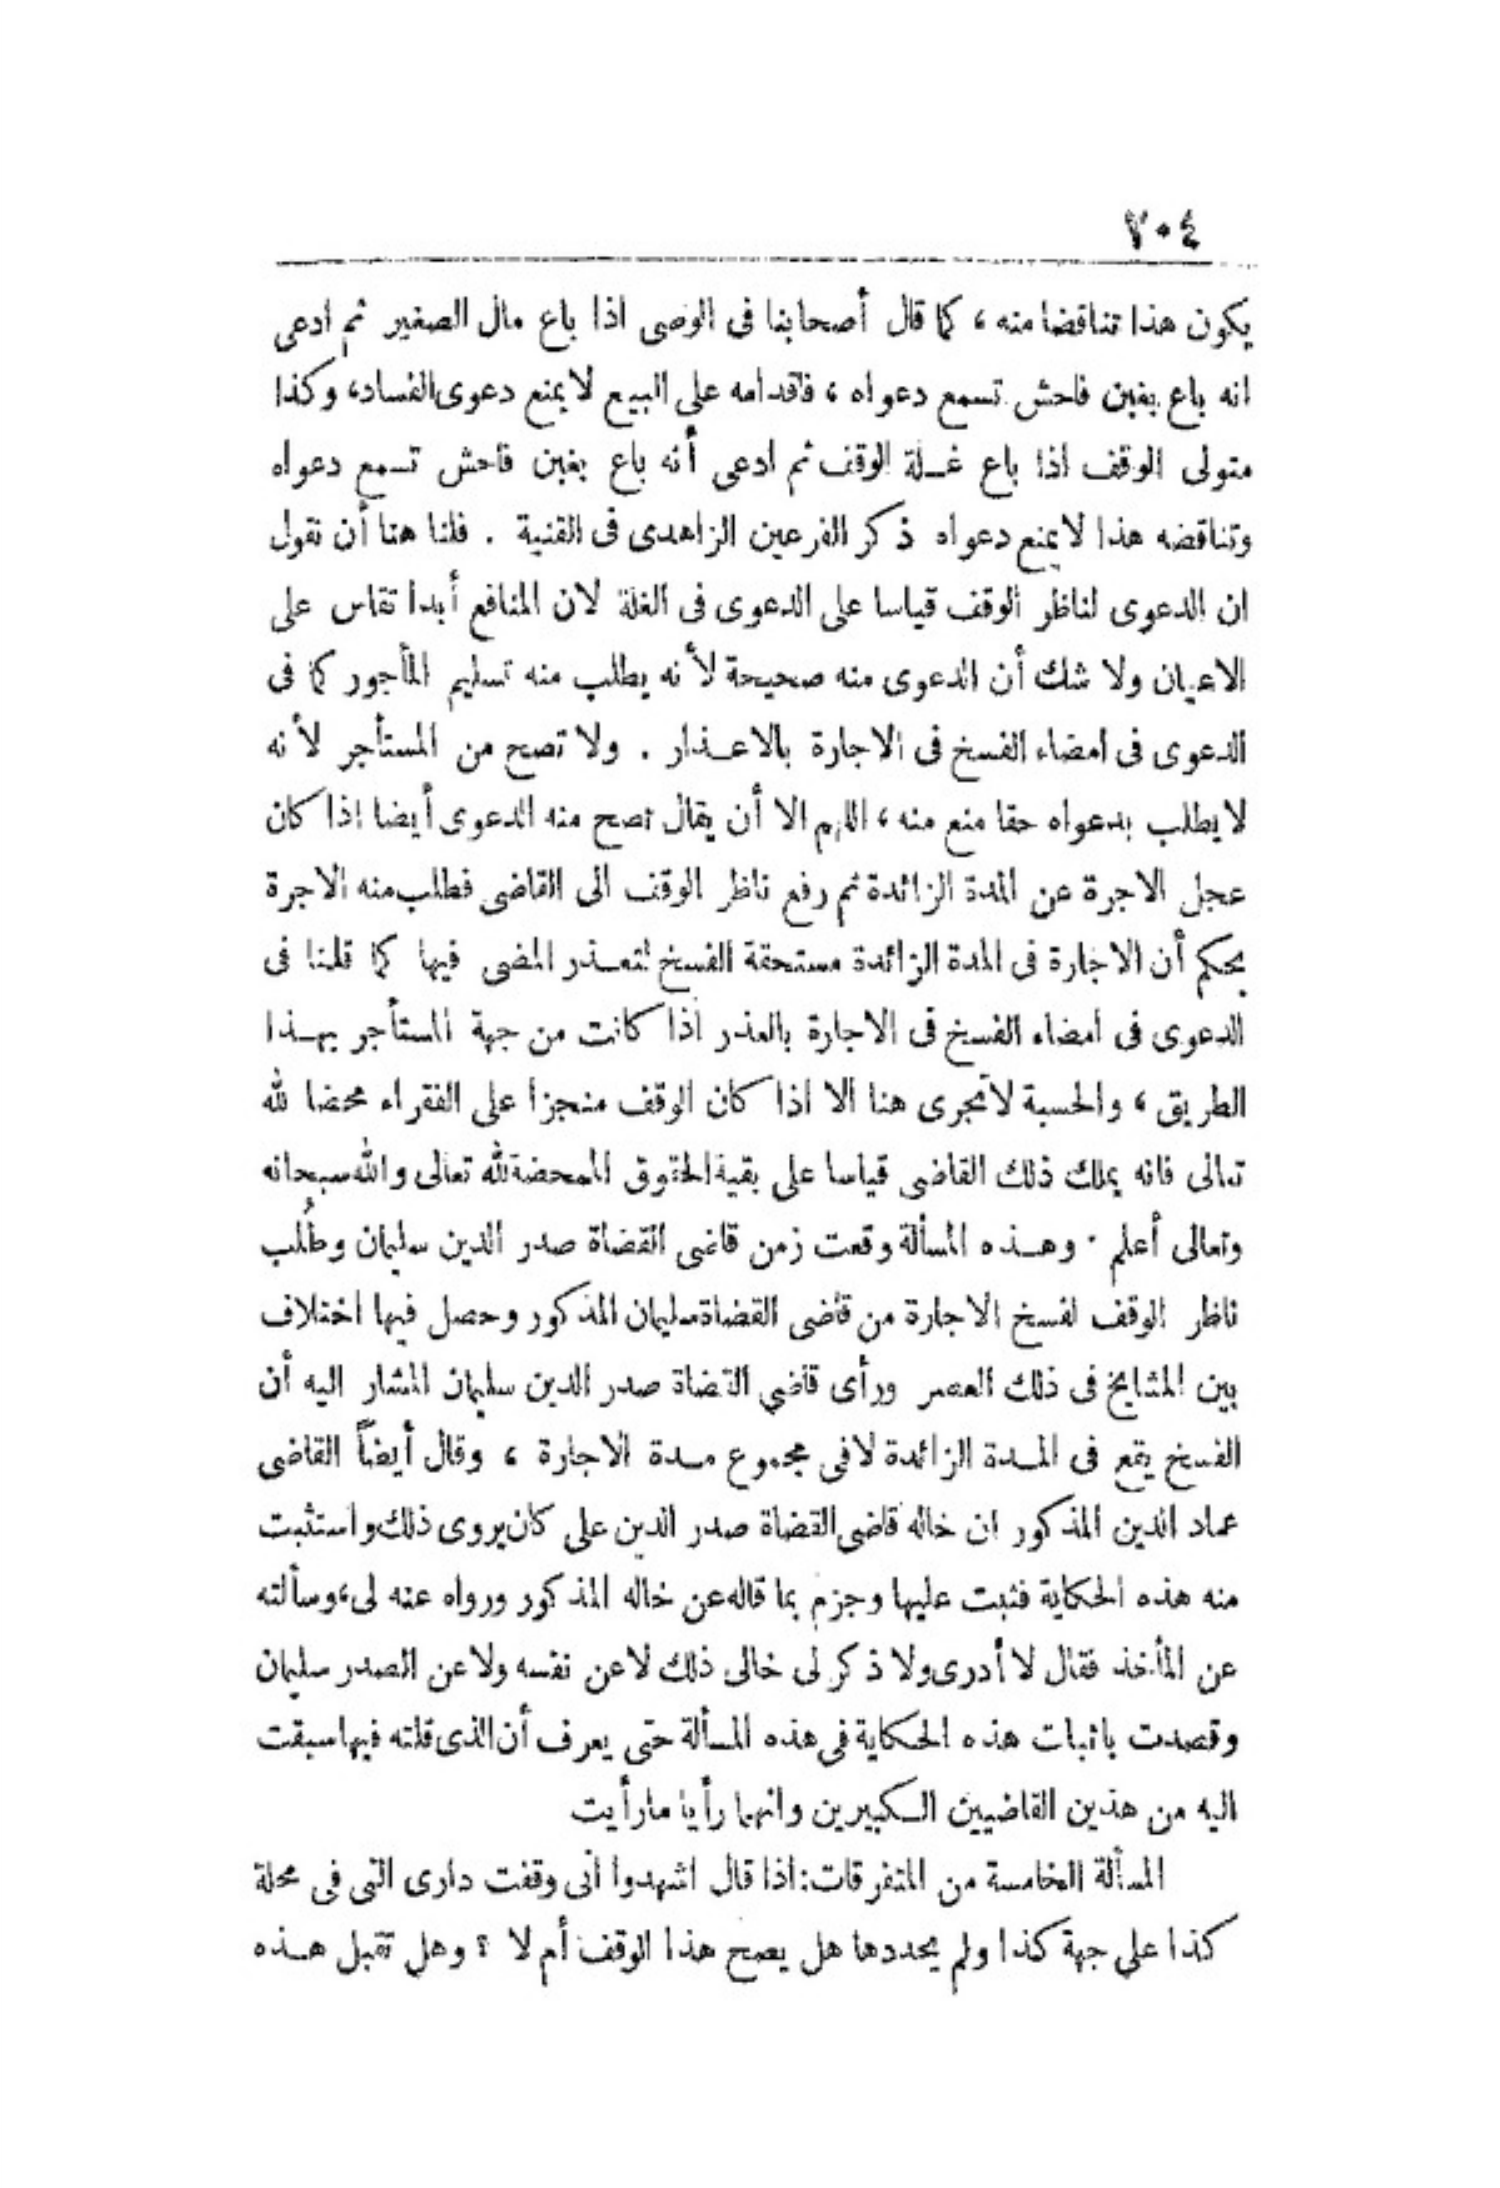 ٢٠٤
يكون هذا تناقضا منه ، كما قال أصحابنا فى الوصى اذا باع مال الصغير ثم ادعى
انه باع بغبن فاحش تسمع دعواه ، فاقدامه على البيع لا يمنع دعوى الفساد، وكذا
متولى الوقف اذا باع غـلة الوقف ثم ادعى أنه باع بغبن فاحش تسمع دعواه
وتناقضه هذا لا يمنع دعواه ذكر الفرعين الزاهدى فى القنية . فلنا هنا أن نقول
ان الدعوى لناظر الوقف قياسا على الدعوى فى الغلة لان المنافع أبدا تقاس على
الاعيان ولا شك أن الدعوى منه صحيحة لأنه يطلب منه تسليم المأجور كما فى
الدعوى فى امضاء الفسخ فى الاجارة بالاعـذار . ولا تصح من المستأجر لأنه
لا يطلب بدعواه حقا منع منه ، اللهم الا أن يقال تصح منه الدعوى أيضا اذا كان
عجل الاجرة عن المدة الزائدة ثم رفع ناظر الوقف الى القاضى فطلب منه الاجرة
بحكم أن الاجارة فى المدة الزائدة مستحقة الفسخ لتعـذر المضى فيها كما قلنا فى
الدعوى فى امضاء الفسخ فى الاجارة بالعذر اذا كانت من جهة المستأجر بهـذا
الطريق ، والحسبة لا تجرى هنا الا اذا كان الوقف منجزا على الفقراء محضا لله
تعالى فانه يملك ذلك القاضى قياسا على بقية الحقوق المحضة لله تعالى والله سبحانه
وتعالى أعلم . وهـذه المسألة وقعت زمن قاضى القضاة صدر الدين سليمان وطُلب
ناظر الوقف لفسخ الاجارة من قاضى القضاة سليمان المذكور وحصل فيها اختلاف
بين المشايخ فى ذلك العصر ورأى قاضي القضاة صدر الدين سليمان المشار اليه أن
الفسخ يقع فى المـدة الزائدة لا فى مجموع مـدة الاجارة ، وقال أيضاً القاضى
عماد الدين المذكور ان خاله قاضى القضاة صدر الدين على كان يروى ذلك واستثبت
منه هذه الحكاية فثبت عليها وجزم بما قاله عن خاله المذكور ورواه عنه لى، وسألته
عن المأخذ فقال لا أدرى ولا ذكر لى خالى ذلك لا عن نفسه ولا عن الصدر سليمان
وقصدت باثبات هذه الحكاية فى هذه المسألة حتى يعرف أن الذى قلته فيها سبقت
اليه من هذين القاضيين الكبيرين وانهما رأيا ما رأيت
المسألة الخامسة من المتفرقات: اذا قال اشهدوا أنى وقفت دارى التى فى محلة
كذا على جهة كذا ولم يحددها هل يصح هذا الوقف أم لا ؟ وهل تقبل هـذه